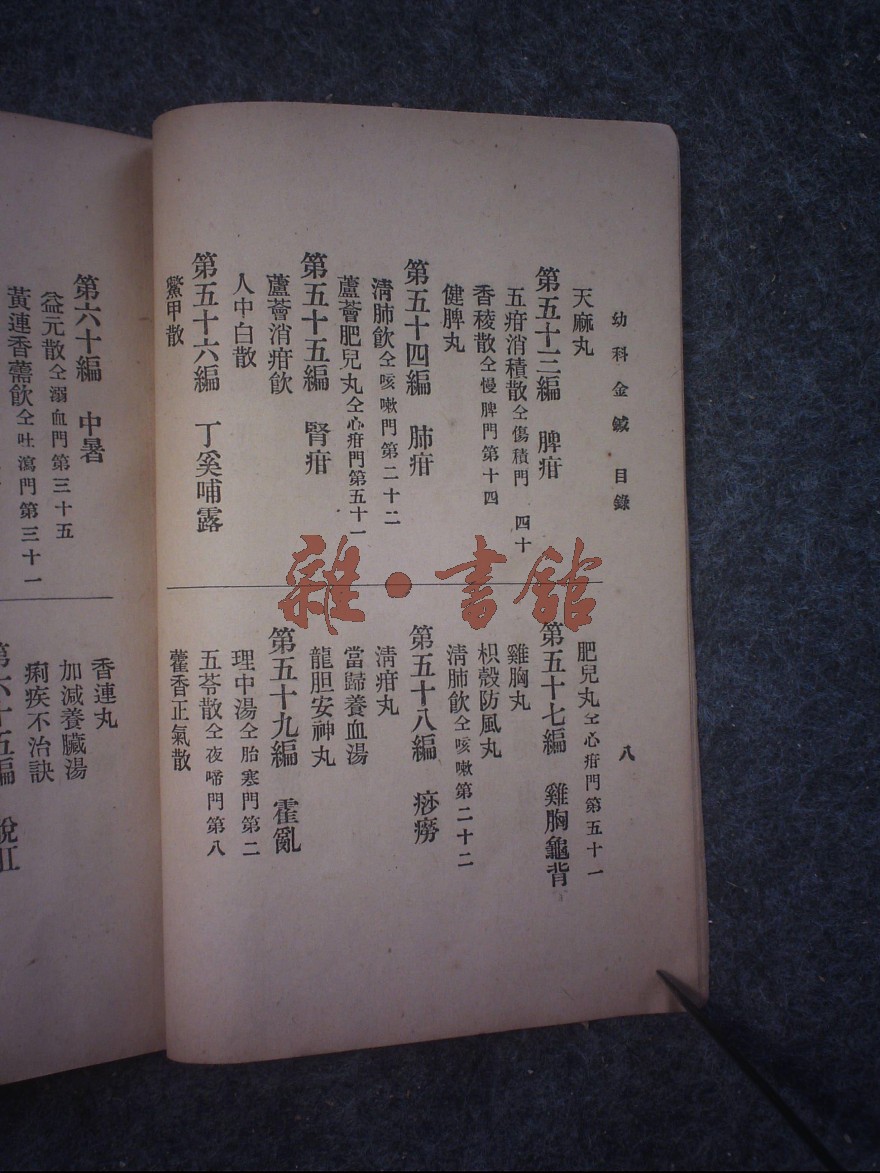 幼科金鍼 目錄
八
天麻丸
第五十三編 脾疳
五疳消積散仝傷積門 四十
香稜散仝慢脾門第十四
健脾丸
第五十四編 肺疳
清肺飲仝咳嗽門第二十二
蘆薈肥兒丸仝心疳門第五十一
第五十五編 腎疳
蘆薈消疳飲
人中白散
第五十六編 丁奚哺露
鱉甲散
肥兒丸仝心疳門第五十一
第五十七編 雞胸龜背
雞胸丸
枳殼防風丸
清肺飲仝咳嗽第二十二
第五十八編 痧癆
清疳丸
當歸養血湯
龍胆安神丸
第五十九編 霍亂
理中湯仝胎寒門第二
五苓散仝夜啼門第八
藿香正氣散
第六十編 中暑
益元散仝溺血門第三十五
黃連香薷飲仝吐瀉門第三十一
香連丸
加減養臟湯
痢疾不治訣
第六十五編 脫肛
雜·書館